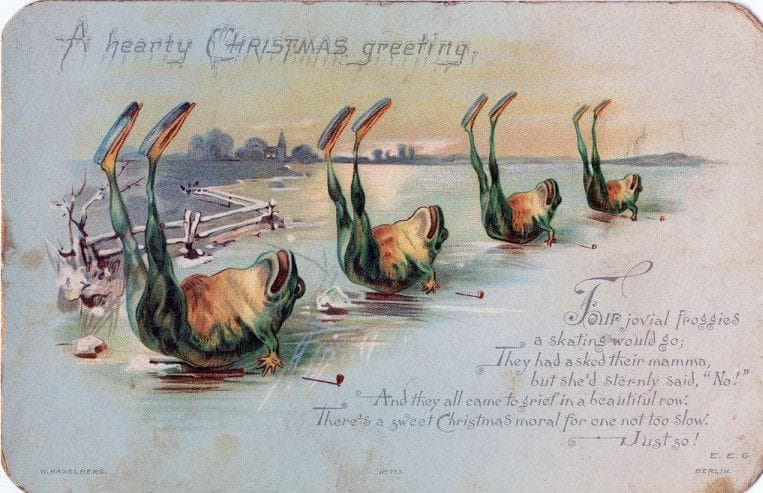 A hearty CHRISTMAS greeting.
Four jovial froggies
a skating would go;
They had asked their mamma,
but she'd sternly said, "No!"
And they all came to grief in a beautiful row.
There's a sweet Christmas moral for one not too slow.
Just so!
E. E. G.
W. HAGELBERG.
Nº 753.
BERLIN.